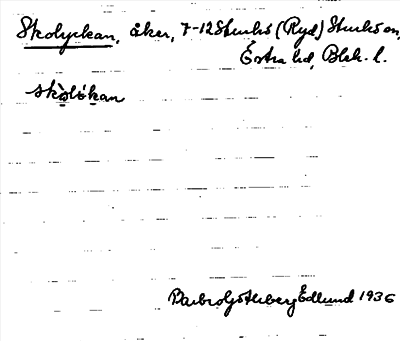 Skolyckan, åker, 7-12 Sturkö (Ryd) Sturkö sn,
Östra hd, Blek. l.
skòlỳkan
Barbro Götherberg Edlund 1936